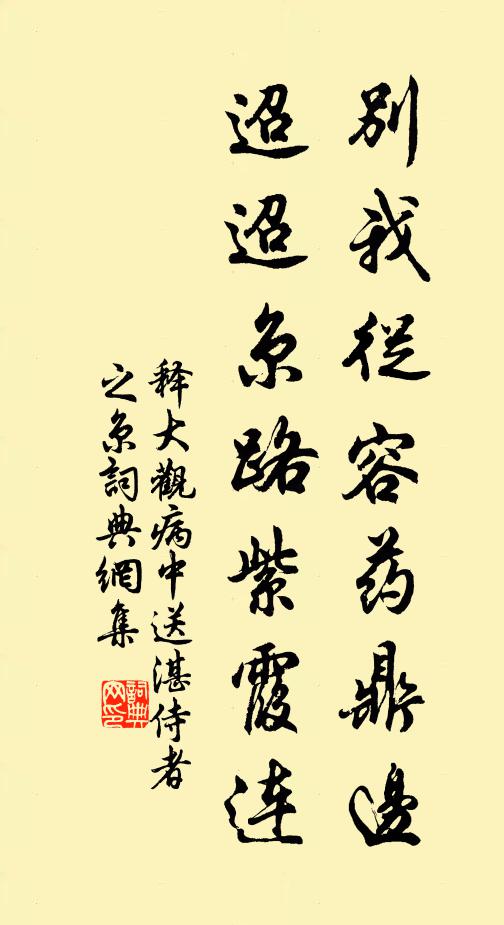 别我從容药鼎邊
迢迢京路紫霞连
释大觀病中送湛侍者
之京詞典網集
詞典
网印